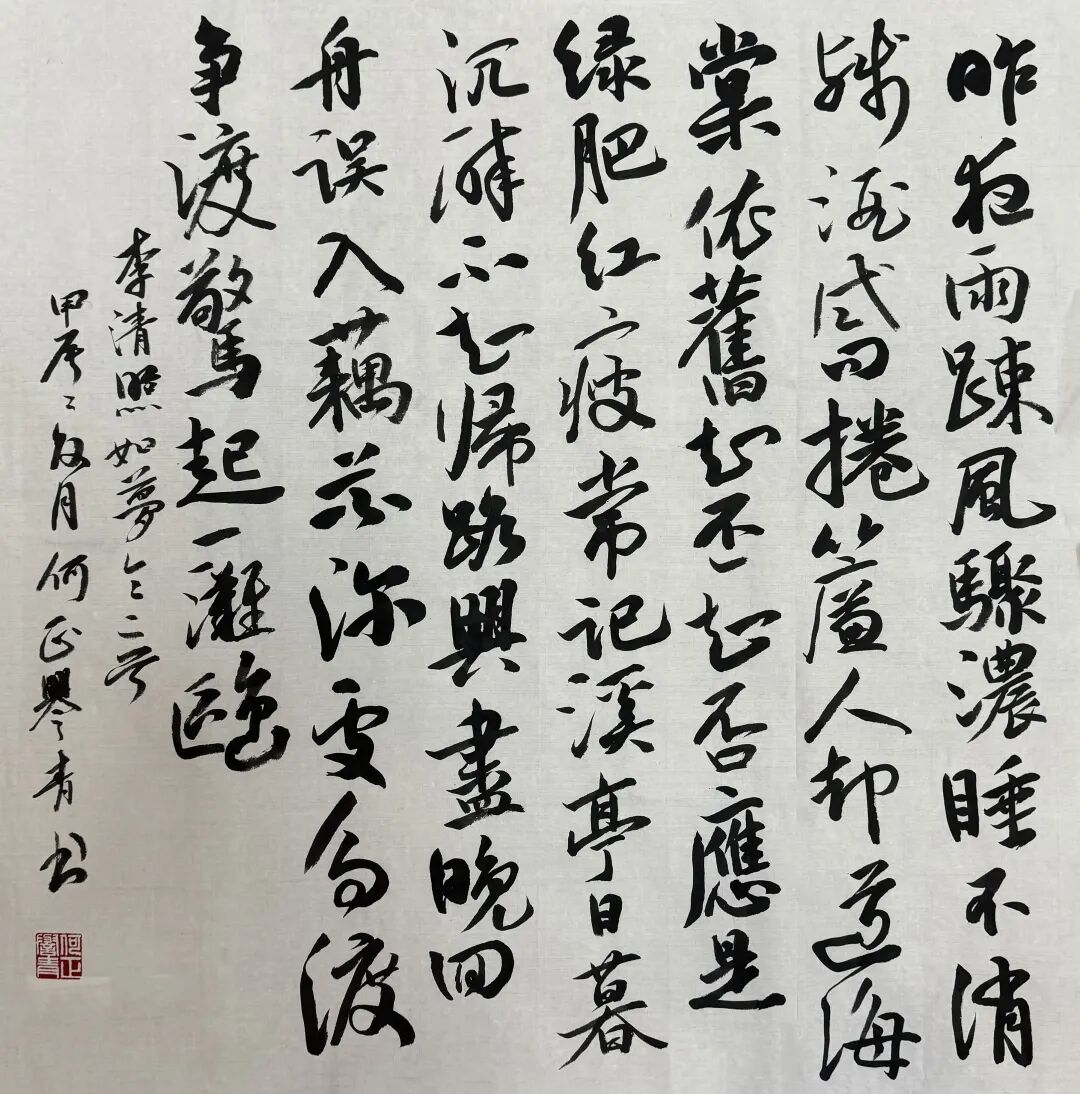 昨夜雨踈風驟濃睡不消
殘酒試问捲簾人却道海
棠依舊知否知否應是
绿肥红瘦常记溪亭日暮
沉醉不知帰路興盡晚回
舟误入藕花深处争渡
争渡驚起一灘鷗
李清照如夢令二首
甲辰月何正青书